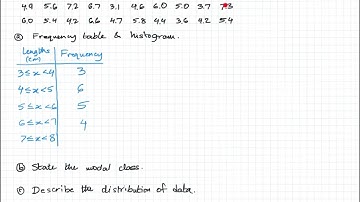 4.9 5.6 7.2 6.7 3.1 4.6 6.0 5.0 3.7 7.3
6.0 5.4 4.2 6.6 4.7 5.8 4.4 3.6 4.2 5.4
(a) Frequency table & histogram.
lengths (cm) Frequency
3≤x<4 3
4≤x<5 6
5≤x<6 5
6≤x<7 4
7≤x<8
(b) State the modal class.
(c) Describe the distribution of data.